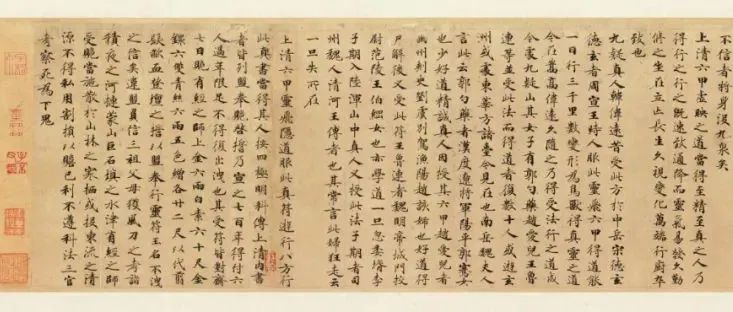 不信者將身沒九泉矣
上清六甲虛映之道當得至精至真之人乃
得行之行之既速致通降而靈氣易發久勤
修之坐在立亡長生久視變化萬端行廚卒
致也
九疑真人韓偉遠昔受此方於中岳宗德玄
德玄者周宣王時人服此靈飛六甲得道能
一日行三千里數變形為鳥獸得真靈之道
今在嵩高偉遠久隨之乃得受法行之道成
今處九疑山其女子有郭勺藥趙愛兒王魯
連等並受此法而得道者復數十人或遊玄
洲或處東華方諸臺今見在也南岳魏夫人
言此云郭勺藥者漢度遼將軍陽平郭騫女
也少好道精誠真人因授其六甲趙愛兒者
幽州刾史劉虞別駕漁陽趙該姊也好道得
尸解後又受此符王魯連者魏明帝城門校
尉范陵王伯綱女也亦學道一旦忽委壻李
子期入陸渾山中真人又授此法子期者司
州魏人清河王傳者也其常言此婦狂走云
一旦失所在
上清六甲靈飛隱道服此真符遊行八方行
此真書當得其人按四極明科傳上清內書
者皆列盟奉貺啓誓乃宣之七百年得付六
人過年限足不得復出洩也其受符皆對齋
七日貺有經之師上金六兩白素六十尺金
鐶六雙青絲六兩五色繒各廿二尺以代翦
髮歃血登壇之誓以盟奉行靈符玉名不洩
之信矣違盟負信三祖父母獲風刀之考詣
積夜之河捷蒙山巨石填之水津有經之師
受貺當施散於山林之寒栖或投東流之清
源不得私用割損以贍己利不遵科法三官
考察死為下鬼